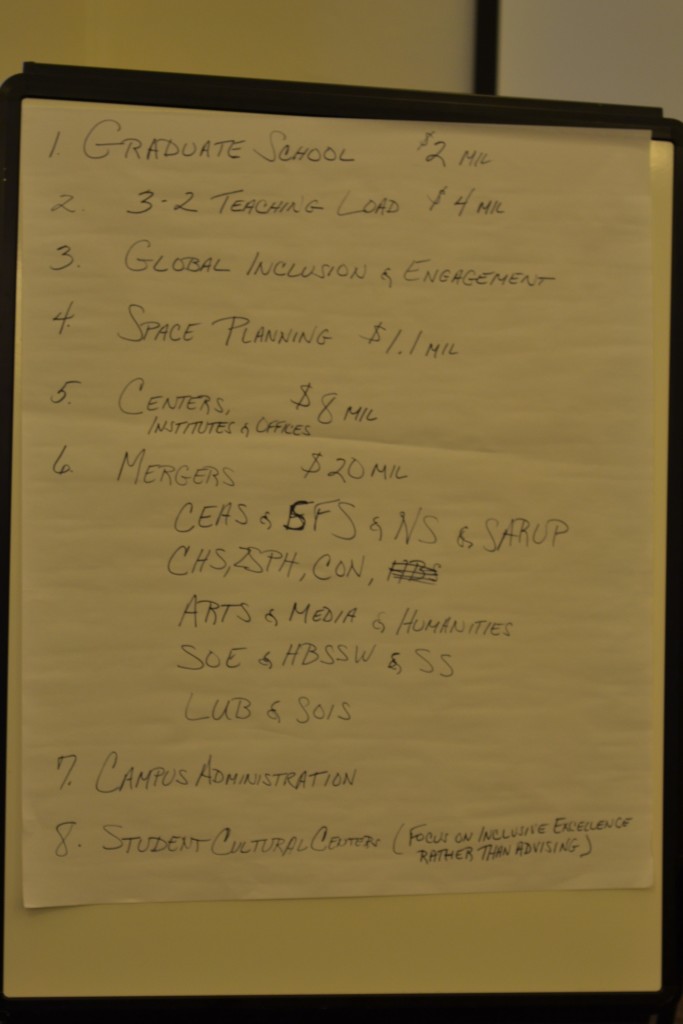 1. GRADUATE SCHOOL $2 MIL
2. 3-2 TEACHING LOAD $4 MIL
3. GLOBAL INCLUSION & ENGAGEMENT
4. SPACE PLANNING $1.1 MIL
5. CENTERS, $8 MIL
INSTITUTES & OFFICES
6. MERGERS $20 MIL
CEAS & SFS & NS & SARUP
CHS, ZSPH, CON,
ARTS & MEDIA & HUMANITIES
SOE & HBSSW & SS
LUB & SOIS
7. CAMPUS ADMINISTRATION
8. STUDENT CULTURAL CENTERS (FOCUS ON INCLUSIVE EXCELLENCE
RATHER THAN ADVISING)